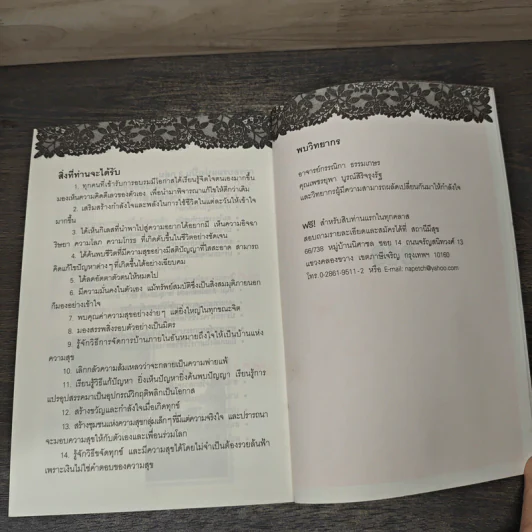 สิ่งที่ท่านจะได้รับ
1. ทุกคนที่เข้ารับการอบรมมีโอกาสได้เรียนรู้จิตใจตนเองมากขึ้น
มองเห็นความคิดดีเลวของตัวเอง เพื่อนำมาพิจารณาแก้ไขให้ดีกว่าเดิม
2. เสริมสร้างกำลังใจและพลังในการใช้ชีวิตในแต่ละวันให้เข้าใจ
มากขึ้น
3. ได้เห็นกิเลสที่นำพาไปสู่ความอยากได้อยากมี เห็นความอิจฉา
ริษยา ความโลภ ความโกรธ ที่เกิดดับขึ้นในชีวิตอย่างชัดเจน
4. ได้ค้นพบชีวิตที่มีความสุขอย่างมีสติปัญญาที่ใสสะอาด สามารถ
คิดแก้ไขปัญหาต่างๆ ที่เกิดขึ้นได้อย่างเฉียบคม
5. ได้ลดอัตตาตัวตนให้หมดไป
6. มีความมั่นคงในตัวเอง แม้ทรัพย์สมบัติซึ่งเป็นสิ่งสมมุติภายนอก
ก็มองอย่างเข้าใจ
7. พบคุณค่าความสุขอย่างง่ายๆ แต่ยิ่งใหญ่ในทุกขณะจิต
8. มองสรรพสิ่งรอบตัวอย่างเป็นมิตร
9. รู้จักวิธีการจัดการบ้านภายในอันหมายถึงใจให้เป็นบ้านแห่ง
ความสุข
10. เลิกกลัวความล้มเหลวว่าจะกลายเป็นความพ่ายแพ้
11. เรียนรู้วิธีแก้ปัญหา ยิ่งเห็นปัญหายิ่งค้นพบปัญญา เรียนรู้การ
แปรอุปสรรคมาเป็นอุปกรณ์วิกฤติพลิกเป็นโอกาส
12. สร้างขวัญและกำลังใจเมื่อเกิดทุกข์
13. สร้างชุมชนแห่งความสุขกลุ่มเล็กๆ ที่มีแต่ความจริงใจ และปรารถนา
จะมอบความสุขให้กับตัวเองและเพื่อนร่วมโลก
14. รู้จักวิธีขจัดทุกข์ และมีความสุขได้โดยไม่จำเป็นต้องรวยล้นฟ้า
เพราะเงินไม่ใช่คำตอบของความสุข
พบวิทยากร
อาจารย์กรรณิกา ธรรมเกษร
คุณเพชรยุพา บูรณ์สิริจรุงรัฐ
และวิทยากรผู้มีความสามารถผลัดเปลี่ยนกันมาให้กำลังใจ
ฟรี! สำหรับสิบท่านแรกในทุกคลาส
สอบถามรายละเอียดและสมัครได้ที่ สถานีมีสุข
66/738 หมู่บ้านนิศาชล ซอย 14 ถนนจรัญสนิทวงศ์ 13
แขวงคลองขวาง เขตภาษีเจริญ กรุงเทพฯ 10160
โทร.0-2861-9511-2 หรือ E-mail: napetch@yahoo.com